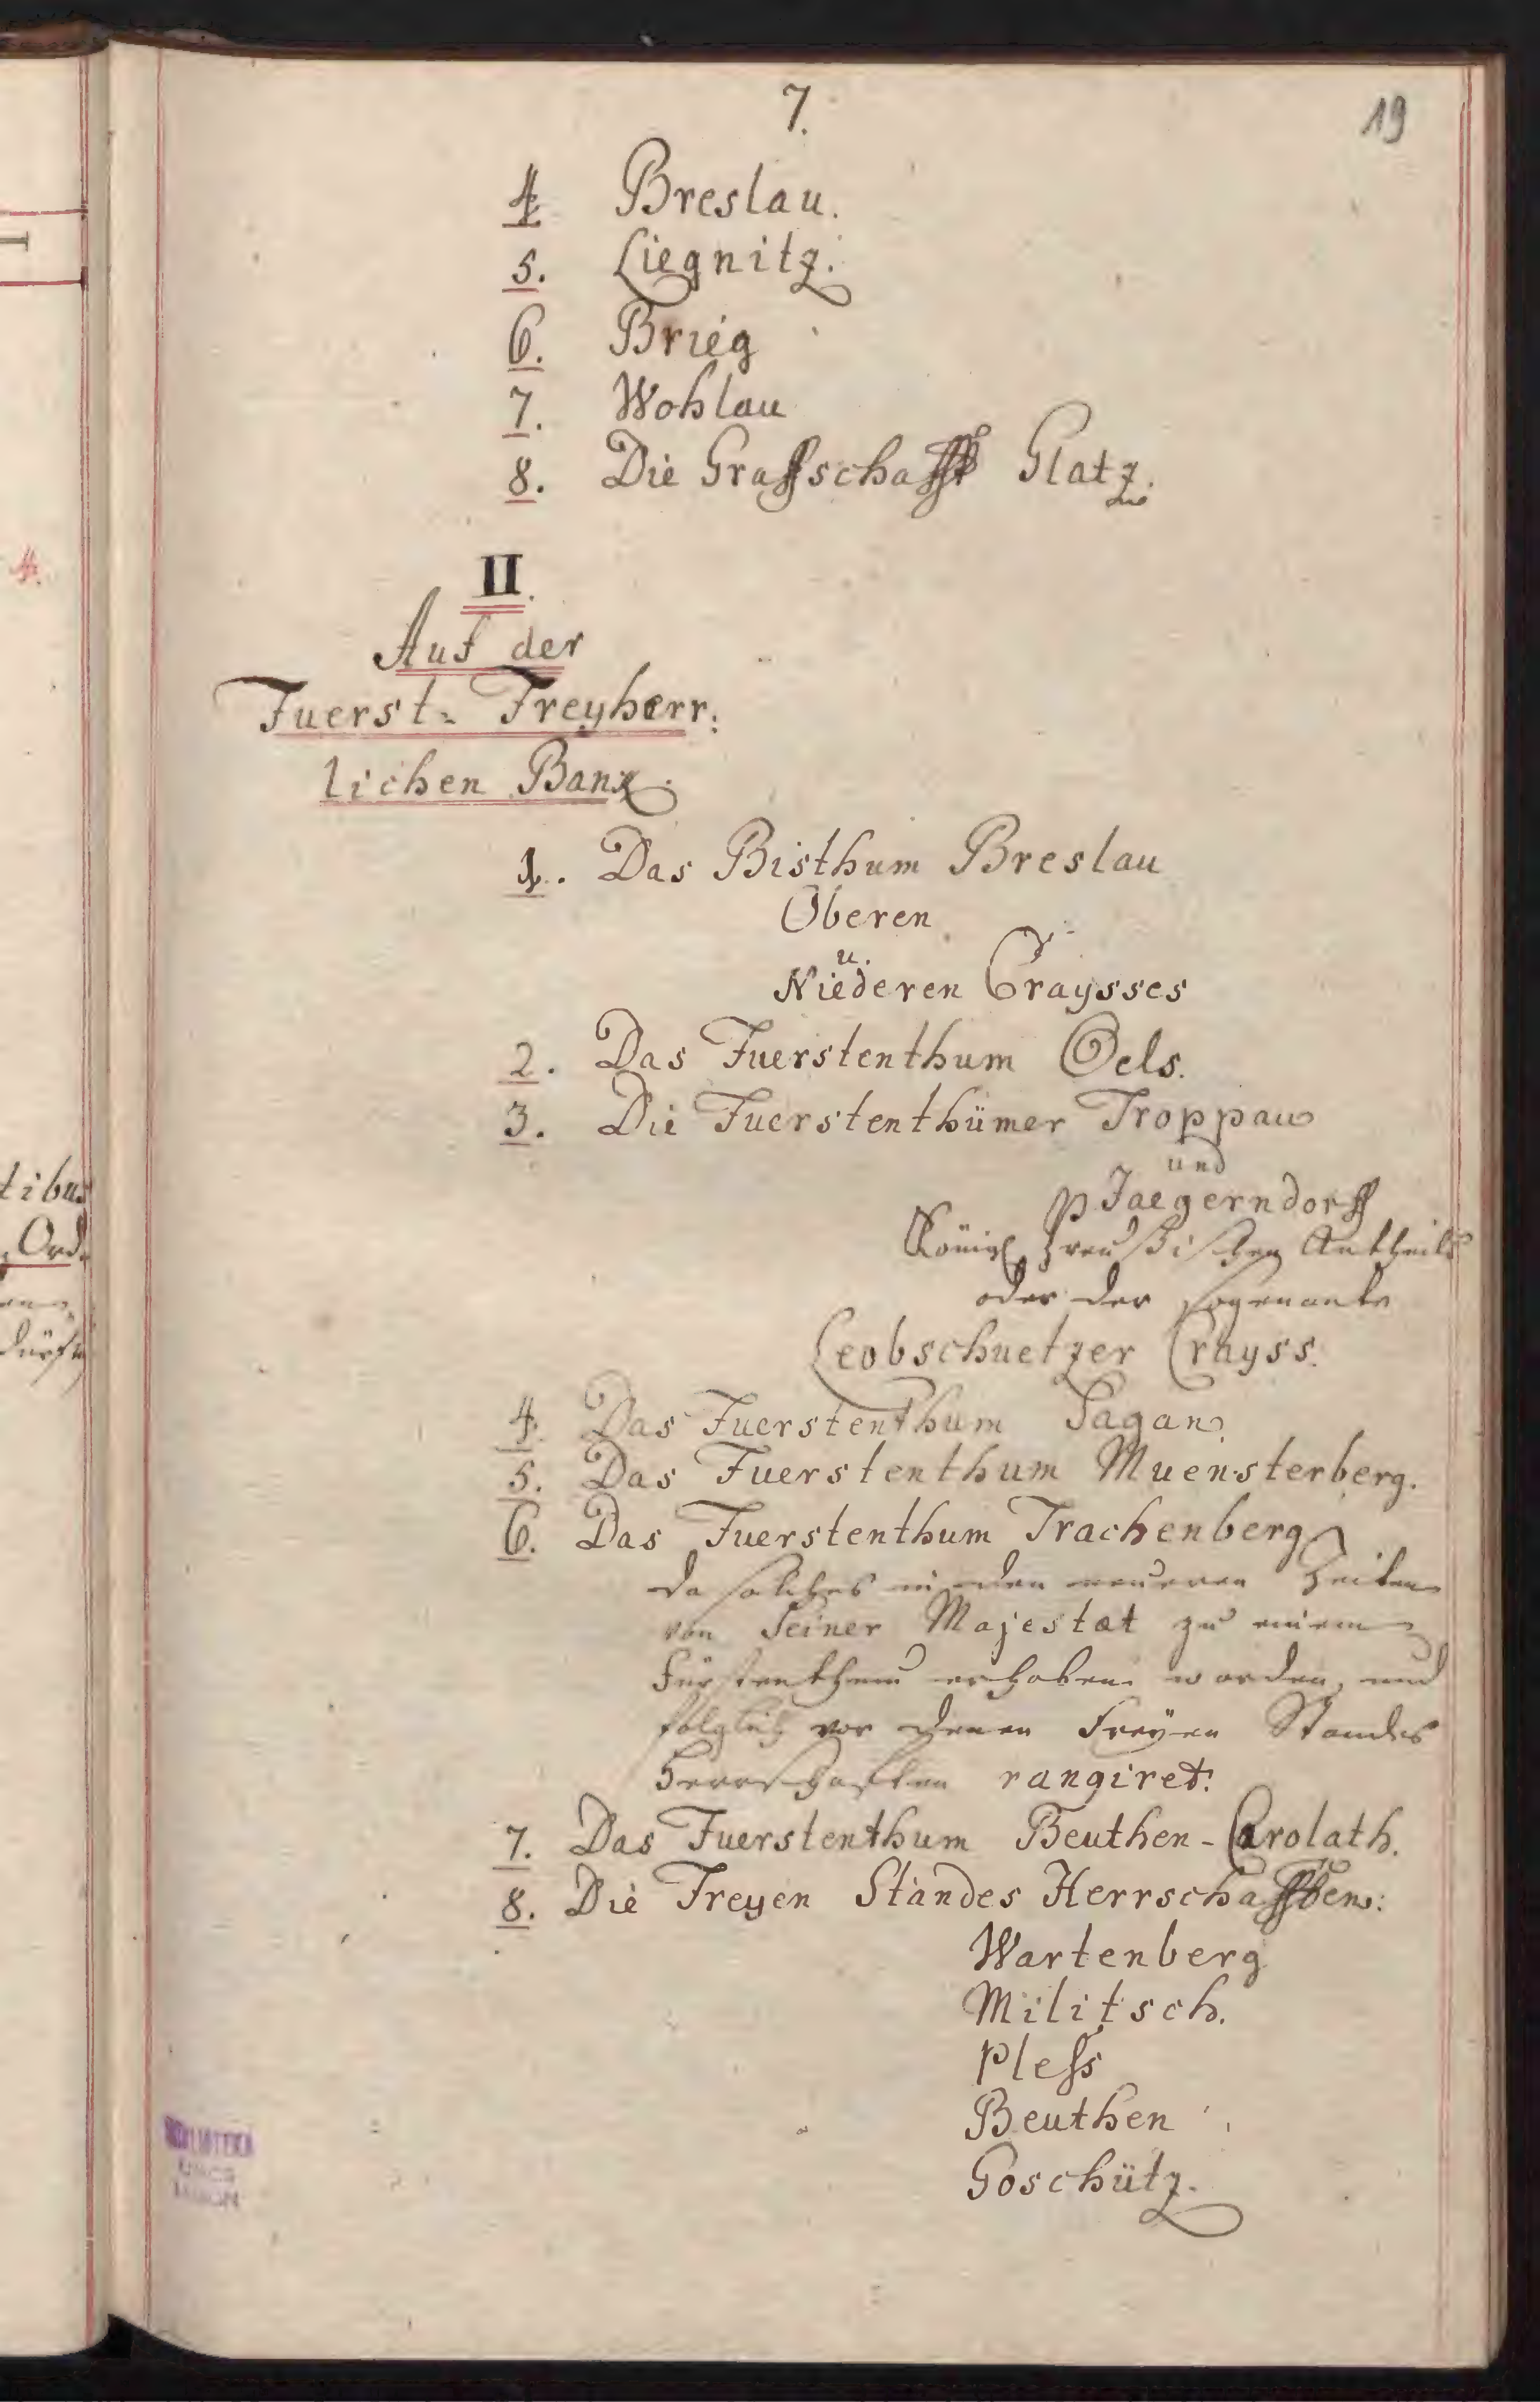 7.
19
4. Breslau.
5. Liegnitz.
6. Brieg
7. Wohlau
8. Die Graffschafft Glatz.
II.
Auf der
Fuerst- Freyherr:
lichen Banx.
1. Das Bisthum Breslau
Oberen
u.
Niederen Craysses
2. Das Fuerstenthum Oels.
3. Die Fuerstenthümer Troppau
und
Jaegerndorff
Königl. Preußischen Antheils
oder der sogenante
Leobschuetzer Crayss.
4. Das Fuerstenthum Sagan.
5. Das Fuerstenthum Muensterberg.
6. Das Fuerstenthum Trachenberg
da solches in den neueren Zeiten
von Seiner Majestat zu einem
Fürstenthum erhoben worden, und
folglich vor denen Freyen Standes
Herrschaften rangiret.
7. Das Fuerstenthum Beuthen-Carolath.
8. Die Freyen Standes Herrschafften:
Wartenberg
Militsch.
Pless
Beuthen
Goschütz.
4.
tibus
Ord.
BIBLIOTEKA